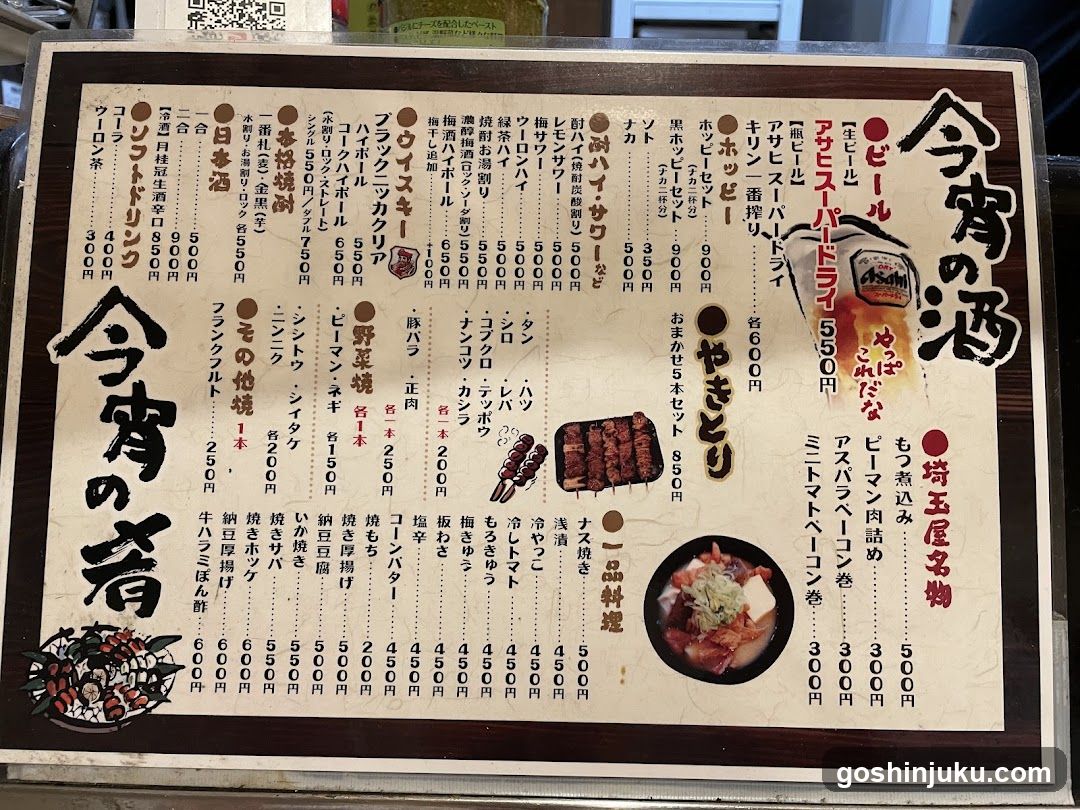 今宵の酒
●ビール
【生ビール】
アサヒスーパードライ 550円
【瓶ビール】
アサヒ スーパードライ
キリン 一番搾り 各600円
Asahi
DRY
やっぱ
これだな
●ホッピー
ホッピーセット 900円
(ナカ二杯分)
黒ホッピーセット 900円
(ナカ二杯分)
ソト 350円
ナカ 500円
●酎ハイ・サワーなど
酎ハイ(焼酎炭酸割り) 500円
レモンサワー 500円
梅サワー 500円
ウーロンハイ 500円
緑茶ハイ 500円
焼酎お湯割り 500円
濃醇梅酒(ロック・ソーダ割り) 550円
梅酒ハイボール 650円
梅干し追加 +100円
●ウイスキー
ブラックニッカクリア
ハイボール 550円
コークハイボール 650円
(水割り・ロック・ストレート)
シングル 550円/ダブル 750円
●本格焼酎
一番札(麦) 金黒(芋)
水割り・お湯割り・ロック 各550円
●日本酒
一合 500円
二合 900円
【冷酒】月桂冠生酒辛口 850円
●ソフトドリンク
コーラ 400円
ウーロン茶 300円
●埼玉屋名物
もつ煮込み 500円
ピーマン肉詰め 300円
アスパラベーコン巻 300円
ミニトマトベーコン巻 300円
●やきとり
おまかせ5本セット 850円
・タン ・ハツ
・シロ ・レバ
・コブクロ・テッポウ
・ナンコツ・カシラ
各一本 200円
・豚バラ ・正肉
各一本 250円
●野菜焼 各1本
・ピーマン・ネギ 各150円
・シシトウ ・シイタケ
・ニンニク 各200円
●その他焼 1本
フランクフルト 250円
●一品料理
ナス焼き 500円
浅漬 450円
冷やっこ 450円
冷しトマト 450円
もろきゅう 450円
梅きゅう 450円
板わさ 450円
塩辛 450円
コーンバター 450円
焼もち 200円
焼き厚揚げ 500円
納豆豆腐 500円
いか焼き 550円
焼きサバ 550円
焼きホッケ 600円
納豆厚揚げ 600円
牛ハラミぽん酢 600円
今宵の肴
goshinjuku.com